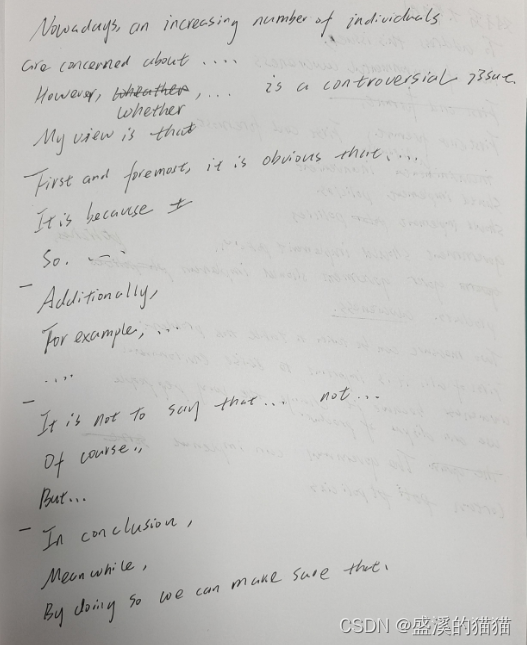 Nowadays, an increasing number of individuals
are concerned about ....
However, wheather, ... is a controversial issue.
whether
My view is that
First and foremost, it is obvious that, ...
It is because
So. ...
Additionally,
For example, ...
....
It is not to say that ... not ...
Of course..
But...
In conclusion,
Meanwhile,
By doing so we can make sure that.
CSDN @盛溪的猫猫